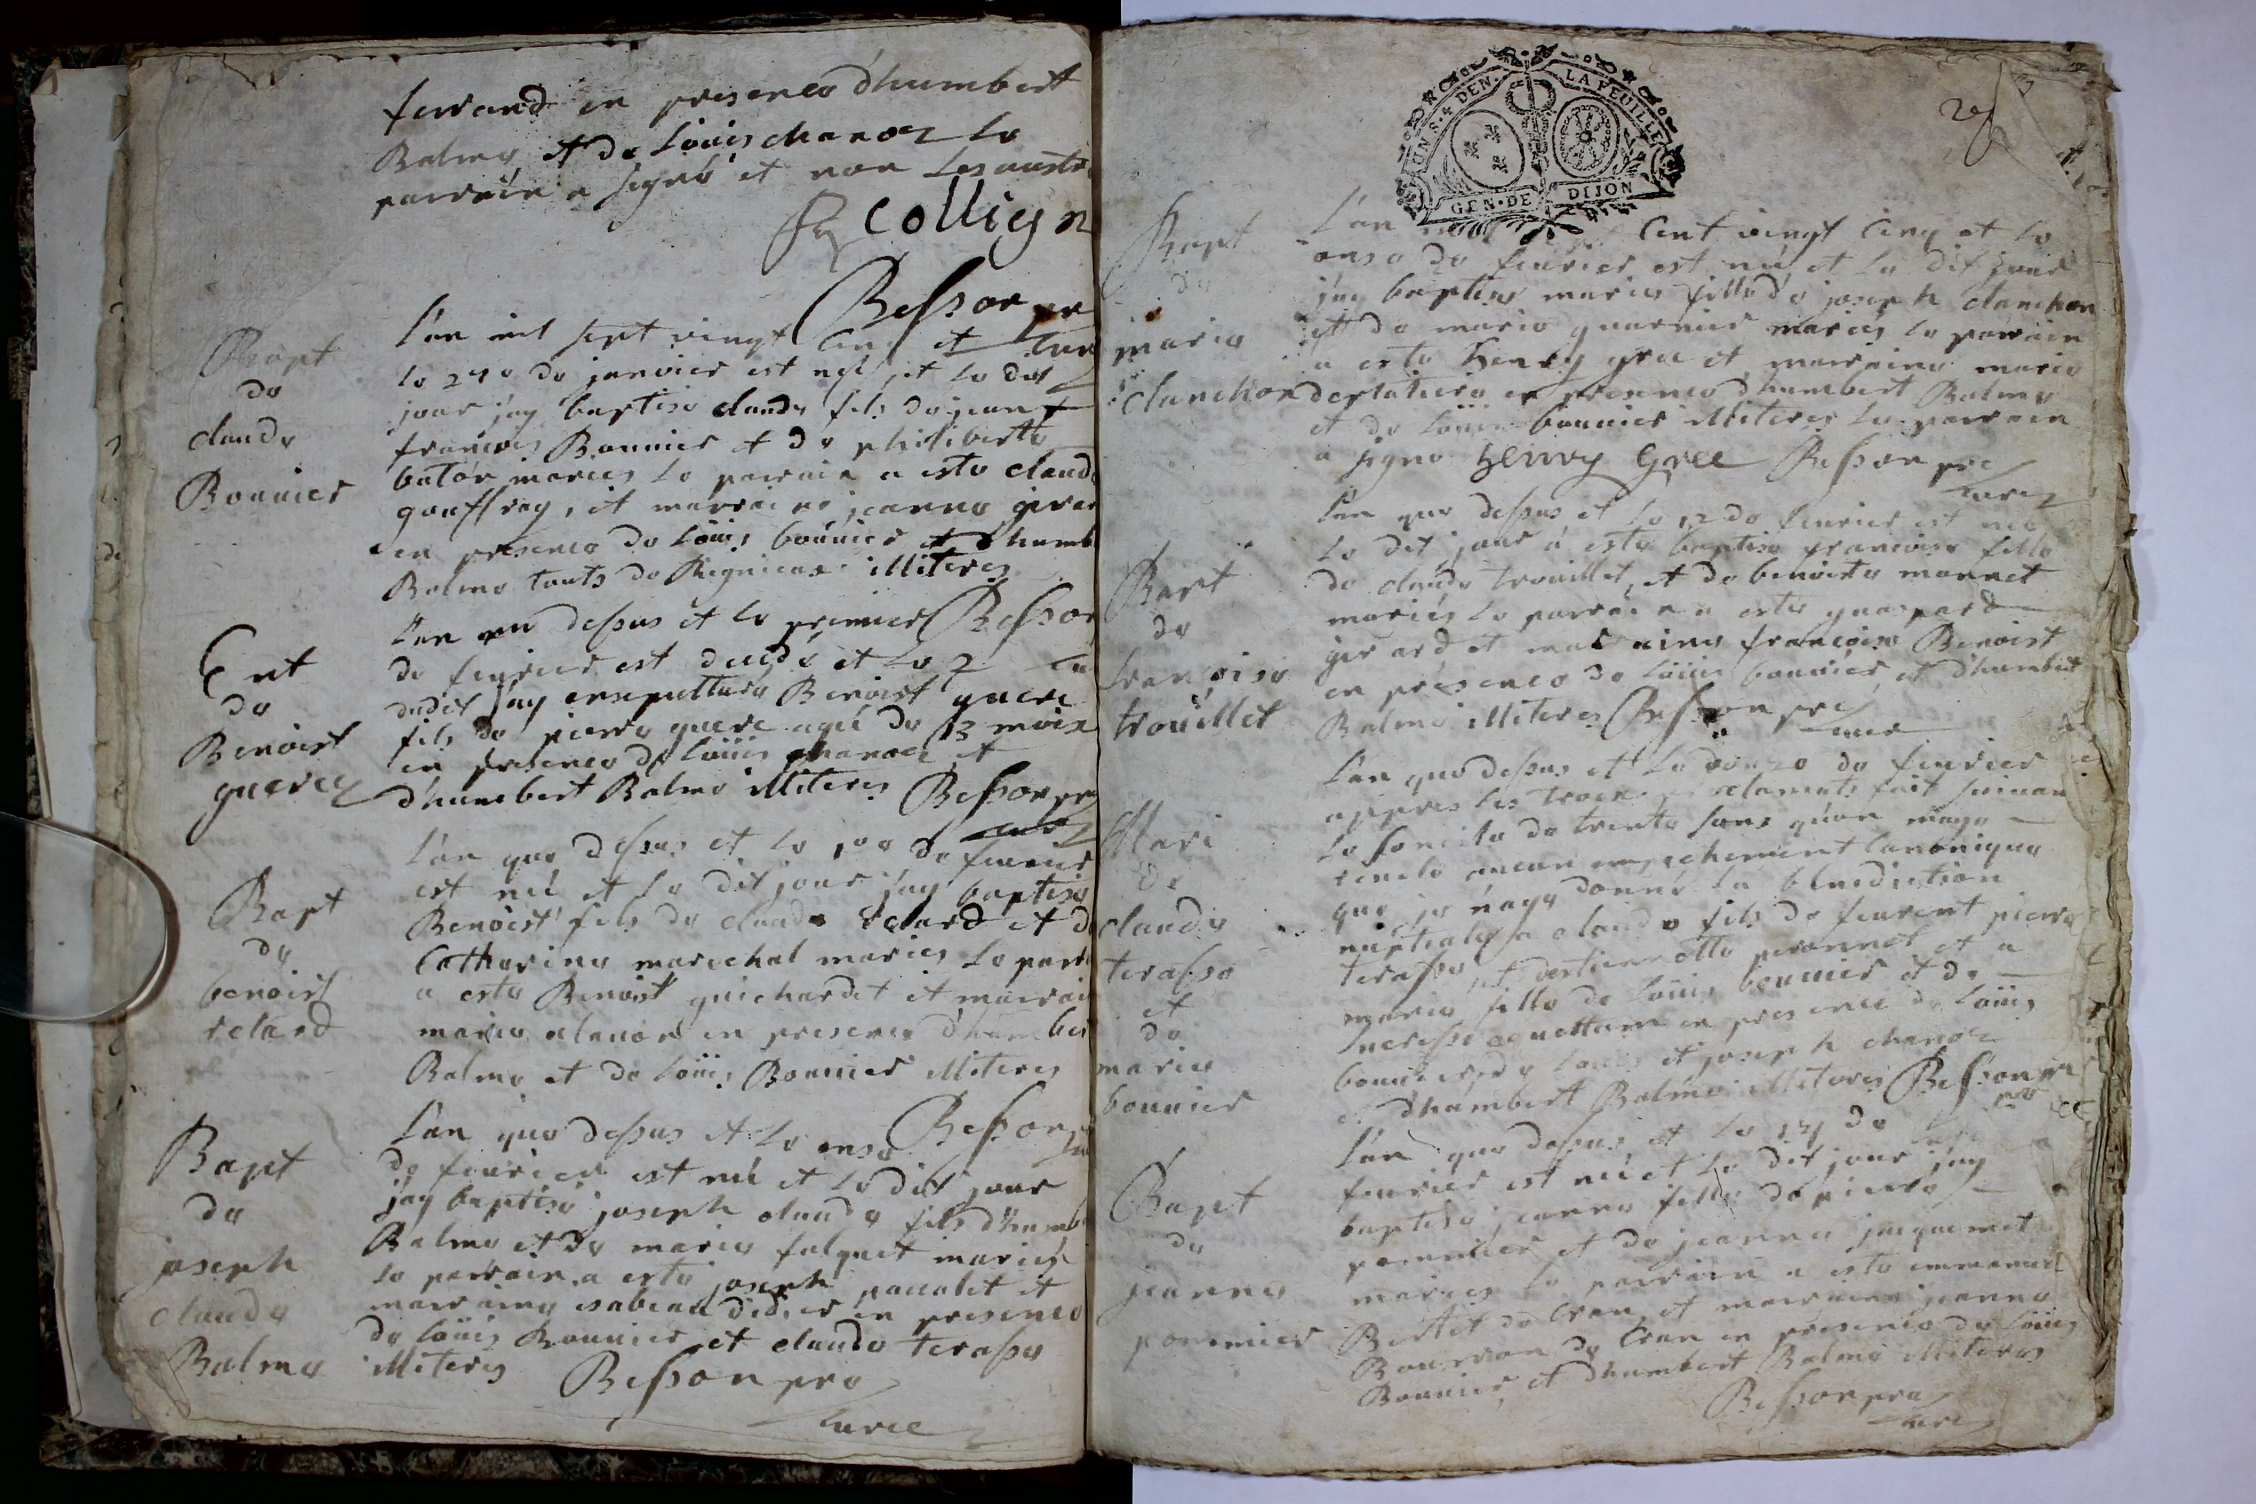 ferrand en presence d'humbert
Balme et de Loüis chanoz le
parrain a signé et non les autre
Collign
Besson pr
Bapt
de
claude
Bonnier
L'an mil sept vingt cinq et
le 27e de janvier est né, et le dit
jour j'ay baptisé claude fils de jean
françois Bonnier et de philiberte
mariés le parrain a esté claude
gouffray, et marraine jeanne girar
en presence de Loüis bonnier et d'humb
Balme touts de Rignieux illiteres
Besson
Ent
de
Benoist
guerez
L'an que dessus et le premier
de feurier est decedé et le 2
dudit j'ay ensepulturé Benoist guere
fils de pierre guere agé de 13 mois
en presence de Loüis chanoz et
d'humbert Balme illiteres Besson pr
curé
Bapt
de
benoist
relard
L'an que dessus et le 10e de feurier
est né et le dit jour j'ay baptisé
Benoist fils de claude relard et de
Catherine marechal mariés le parr
a esté Benoist guichardet et marrain
marie alanon en presence d'humber
Balme et de Loüis Bonnier illiteres
Besson
Bapt
de
joseph
claude
Balme
L'an que dessus et le onse
de feurier est né et le dit jour
j'ay baptisé joseph claude fils d'humb
Balme et de marie falquet mariés
le parrain a esté joseph pacalet et
marraine isabeau didier en presence
de Loüis Bonnier et claude terasse
illiteres Besson pre
curé
UN S. 4 DEN. LA FEUILLE
GEN. DE DIJON
Bapt
de
marie
clanchon
L'an mil sept cent vingt cinq et le
onse de feurier est né et le dit jour
j'ay baptisé marie fille de joseph clanchon
et de marie guarnier mariés le parrain
a esté henry gree et marraine marie
en presence d'humbert Balme
et de Loüis bonnier illiteres le parrain
a signé henry Gree Besson pre
curé
Bapt
de
francoise
trouillet
L'an que dessus et le 12 de feurier est né
le dit jour a esté baptisé francoise fille
de claude trouillet, et de benoiste monnet
mariés le parrain a esté guaspard
girard et marraine francoise Benoist
en presence de Loüis bonnier et d'humbert
Balme illiteres Besson pre
curé
Mari
de
claude
terasse
et
de
marie
bonnier
L'an que dessus et le douze de feurier
appres les trois proclamats fait suivan
le Concile de trente sans qu'on m'aye
revelé aucun empechement canonique
que je n'aye donné la benediction
nuptiale a claude fils de feurent pierre
terasse et d'estiennette peronnet et a
marie fille de Loüis bonnier et de
lucresse aguettam en presence de Loüis
bonnier, de Loüis et joseph chanoz
et d'humbert Balme illiteres Besson pr
Bapt
de
jeanne
pommier
L'an que dessus et le 14 de
feurier est né et le dit jour j'ay
baptisé jeanne fille de pierre
pommier et de jeanne jaquemet
mariés le parrain a esté emmanuel
Berthet de Cran, et marraine jeanne
Bourrion de Cran en presence de Loüis
Bonnier et d'humbert Balme illiteres
Besson pre
curé